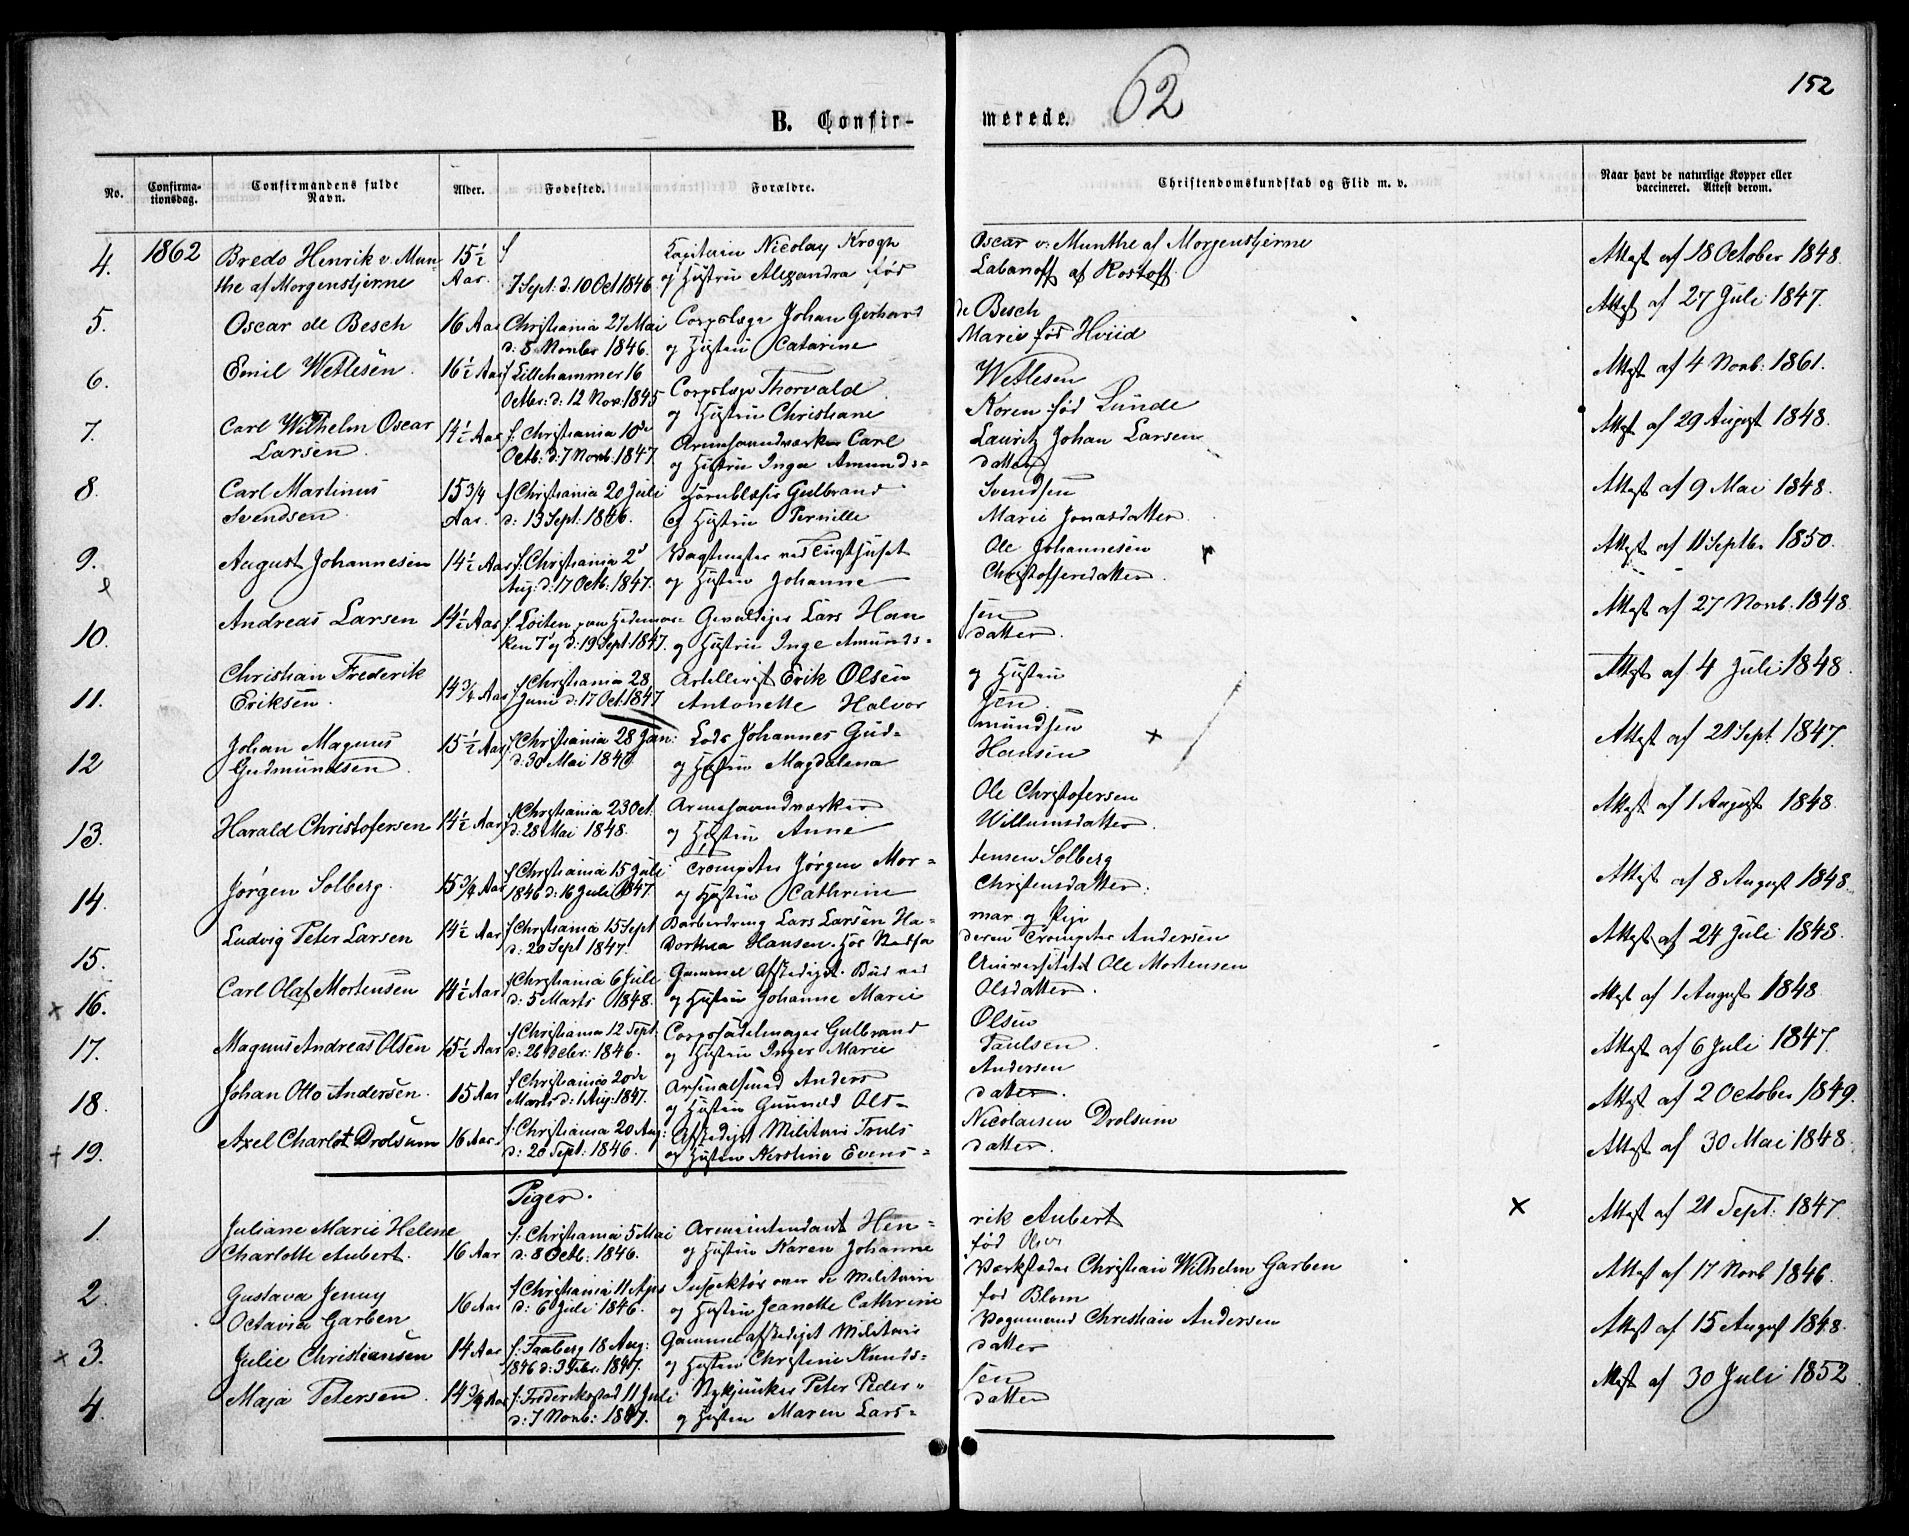 152
62
B. Confir-
merede.
No.
Confirma-
tionsdag.
Confirmandens fulde
Navn.
Alder.
Fødested.
Forældre.
Christendomskundskab og Flid m. v.
Naar havt de naturlige Kopper eller
vaccineret. Attest derom.
4. 1862 Bredo Henrik v. Mun- 15½ f Kapitain Nicolay Krogh Oscar v. Munthe af Morgenstjerne Attest af 18 October 1848.
the af Morgenstjerne Aar. 7 Sept. d: 10 Oct 1846. og Hustru Alexandra fød Labanoff af Rostoff.
5. Oscar de Besch 16 Aar Christiania 27 Mai Corpslæge Johan Gerhard de Besch Attest af 27 Juli 1847.
d: 8 Novbr 1846. og Hustru Catarine Marie fød Hviid
6. Emil Wetlesen. 16½ Aar f Lillehammer 16 Corpslæge Thorvald Wetlesen Attest af 4 Novb: 1861.
Octbr: d: 12 Nov: 1845 og Hustru Christiane Koren fød Lunde
7. Carl Wilhelm Oscar 14½ Aar f: Christiania 10de Armehaandværker Carl Lauritz Johan Larsen Attest af 29 August 1848.
Larsen. Octb: d: 7 Novb. 1847. og Hustru Inga Amunds- datter
8. Carl Martinus 15 3/4 f Christiania 20 Juli Hornblæser Gulbrand Svendsen Attest af 9 Mai 1848.
Svendsen. Aar. d: 13 Sept: 1846. og Hustru Pernille Marie Jonasdatter.
9. August Johannesen 14½ Aar f: Christiania 2d Vagtmester ved Tugthuset Ole Johannesen Attest af 11 Septbr 1850.
Aug: d: 17 Octb. 1847. og Hustru Johanne Christoffersdatter.
10. Andreas Larsen 14½ Aar f. Løiten paa Hedemar- Gevaldiger Lars Han sen Attest af 27 Novb. 1848.
ken 7 og d: 19 Sept 1847. og Hustru Inge Amunds- datter.
11. Christian Frederik 14 3/4 Aar f Christiania 28 Artillerist Erik Olsen og Hustru Attest af 4 Juli 1848.
Eriksen. Juni d: 17 Oct. 1847 Antonette Halvor sen.
12 Johan Magnus 15½ Aar f Christiania 28 Jan: Lods Johannes Gud- mundsen x Attest af 21 Sept. 1847.
Gudmundsen. d: 30 Mai 1847 og Hustru Magdalena Hansen
13. Harald Christofersen 14½ Aar f Christiania 23 Oct. Armehaandværker Ole Christofersen Attest af 1 August 1848.
d: 28 Mai 1848. og Hustru Anne Willumsdatter.
14. Jørgen Solberg. 15 3/4 Aar f Christiania 15 Juli Trompeter Jørgen Mor- tensen Solberg Attest af 8 August 1848.
1846 d: 16 Juli 1847. og Hustru Cathrine Christensdatter.
15. Ludvig Peter Larsen 14½ Aar f Christiania 15 Sept Barberdreng Lars Larsen Ha- mar og Pige Attest af 24 Juli 1848.
d: 20 Sept 1847. Dorthea Hansen. hos Stedfa deren Trompeter Andersen
x 16. Carl Olaf Mortensen 14½ Aar f Christiania 6 Juli Gammel Afskediget. Bud ved Universitetet Ole Mortensen Attest af 1 August 1848.
d: 5 Marts 1848. og Hustru Johanne Marie Olsdatter.
17. Magnus Andreas Olsen 15½ Aar f Christiania 12 Sept. Corpssadelmager Gulbrand Olsen Attest af 6 Juli 1847.
d: 26 Decbr. 1846. og Hustru Inger Marie Paulsen.
18. Johan Otto Andersen. 15 Aar f Christiania 20de Arsenalsmed Anders Andersen Attest af 2 October 1849.
Marts d: 1 Aug: 1847. og Hustru Gunild Ols- datter.
+ 19. Axel Charlot Drolsum 16 Aar. f: Christiania 20 Aug: Afskediget Militair Truls Nicolaisen Drolsum Attest af 30 Mai 1848.
d: 20 Sept: 1846. og Hustru Kerstine Evens- datter.
Piger.
1. Juliane Marie Helene f: Christiania 5 Mai Armeintendant Hen- rik Aubert x Attest af 21 Sept. 1847.
Charlotte Aubert. 16 Aar d: 8 Octb. 1846. og Hustru Karen Johanne fød
2. Gustava Jenny 16 Aar f Christiania 11 Apr Inspektør over de Militaire Værksteder Christian Wilhelm Garben Attest af 17 Novb 1846.
Octavia Garben d: 6 Juli 1846. og Hustru Jeanette Cathrine fød Blom
x 3. Julie Christiansen 14 Aar f. Faaberg 18 Aug: Gammel afskediget Militair Vognmand Christian Andersen Attest af 15 August 1848.
1846 d: 3 Febr. 1847. og Hustru Christine Knuds- datter
4. Maja Petersen. 14 3/4 Aar f: Frederikstad 11 Juli Styrjunker Peter Peder- sen Attest af 30 Juli 1852
d: 7 Novb: 1847. og Hustru Maren Lars- datter